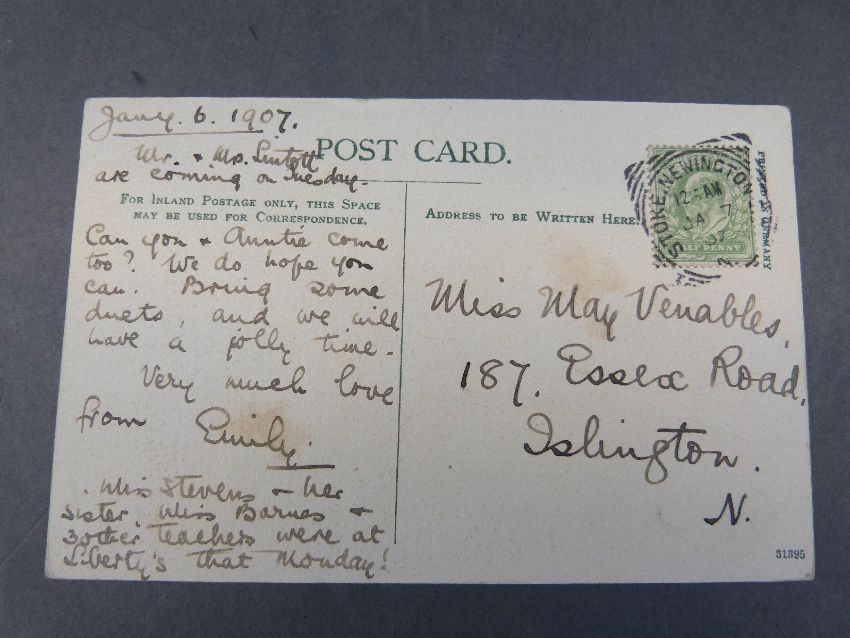 Jany. 6. 1907.
Mr. & Mrs. Lintott
are coming on Tuesday.
POST CARD.
FOR INLAND POSTAGE ONLY, THIS SPACE
MAY BE USED FOR CORRESPONDENCE.
Can you & Auntie come
too? We do hope you
can. Bring some
duets, and we will
have a jolly time.
Very much love
from Emily.
Miss Stevens & her
sister, Miss Barnes &
3 other teachers were at
Liberty's that Monday!
ADDRESS TO BE WRITTEN HERE.
STOKE-NEWINGTON
12.    AM
JA 7
07
HALF PENNY
PRINTED IN GERMANY
Miss May Venables,
187. Essex Road,
Islington.
N.
31395